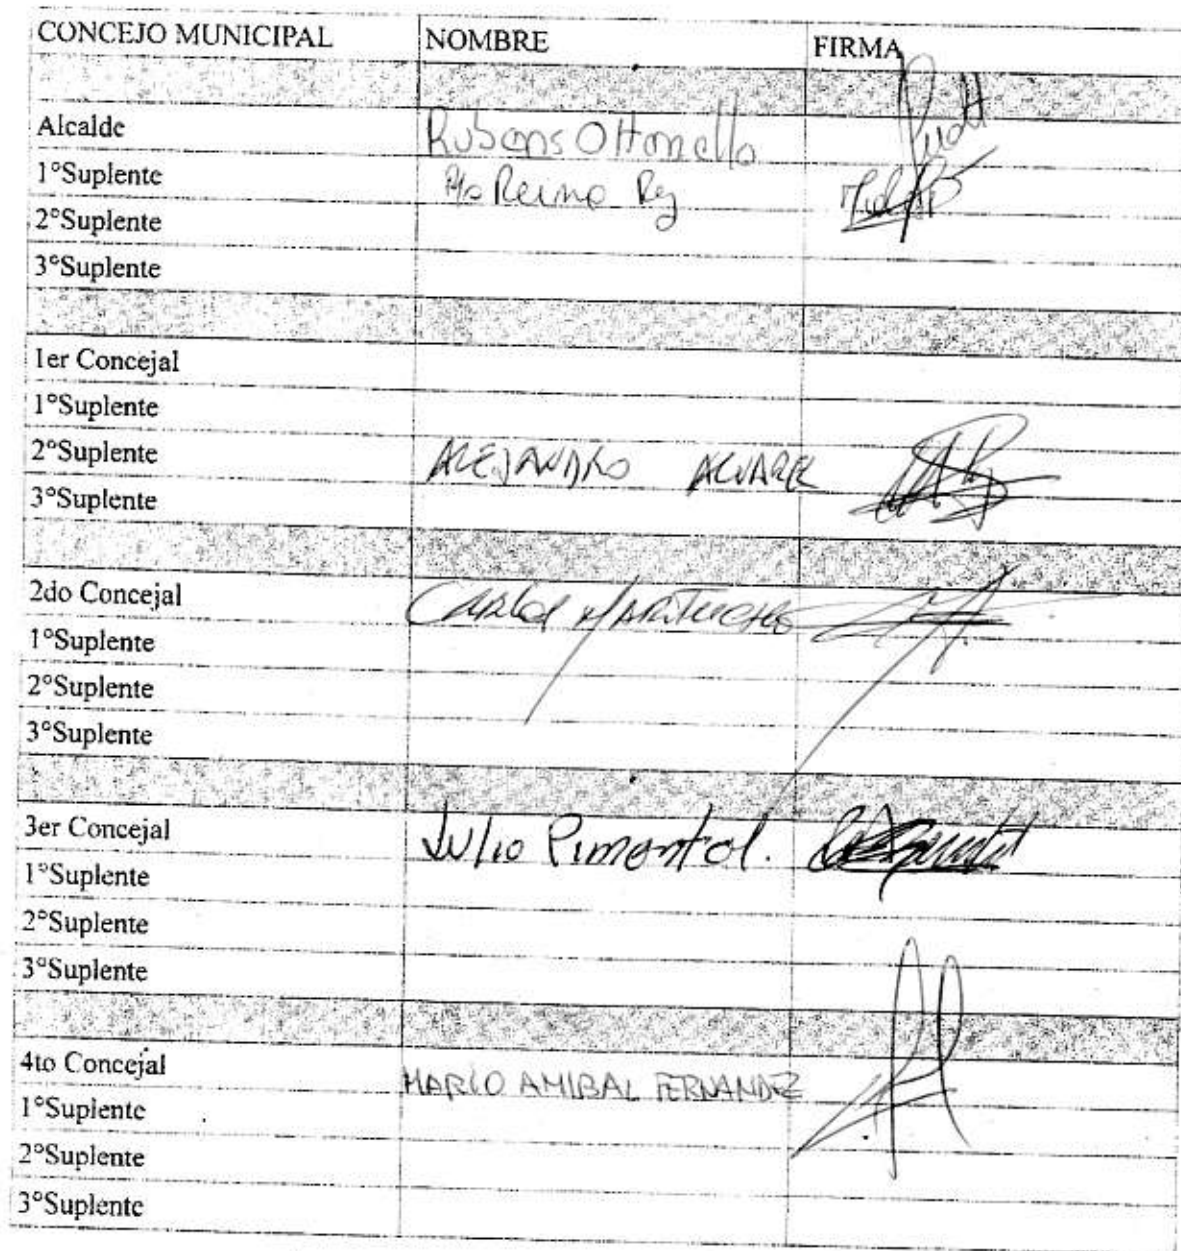 CONCEJO MUNICIPAL NOMBRE FIRMA
Alcalde Rubens Ottonello
1°Suplente Ma Reina Rey
2°Suplente
3°Suplente
1er Concejal
1°Suplente
2°Suplente ALEJANDRO ALVAREZ
3°Suplente
2do Concejal Carlos
1°Suplente
2°Suplente
3°Suplente
3er Concejal Julio Pimentel.
1°Suplente
2°Suplente
3°Suplente
4to Concejal MARIO ANIBAL FERNANDEZ
1°Suplente
2°Suplente
3°Suplente